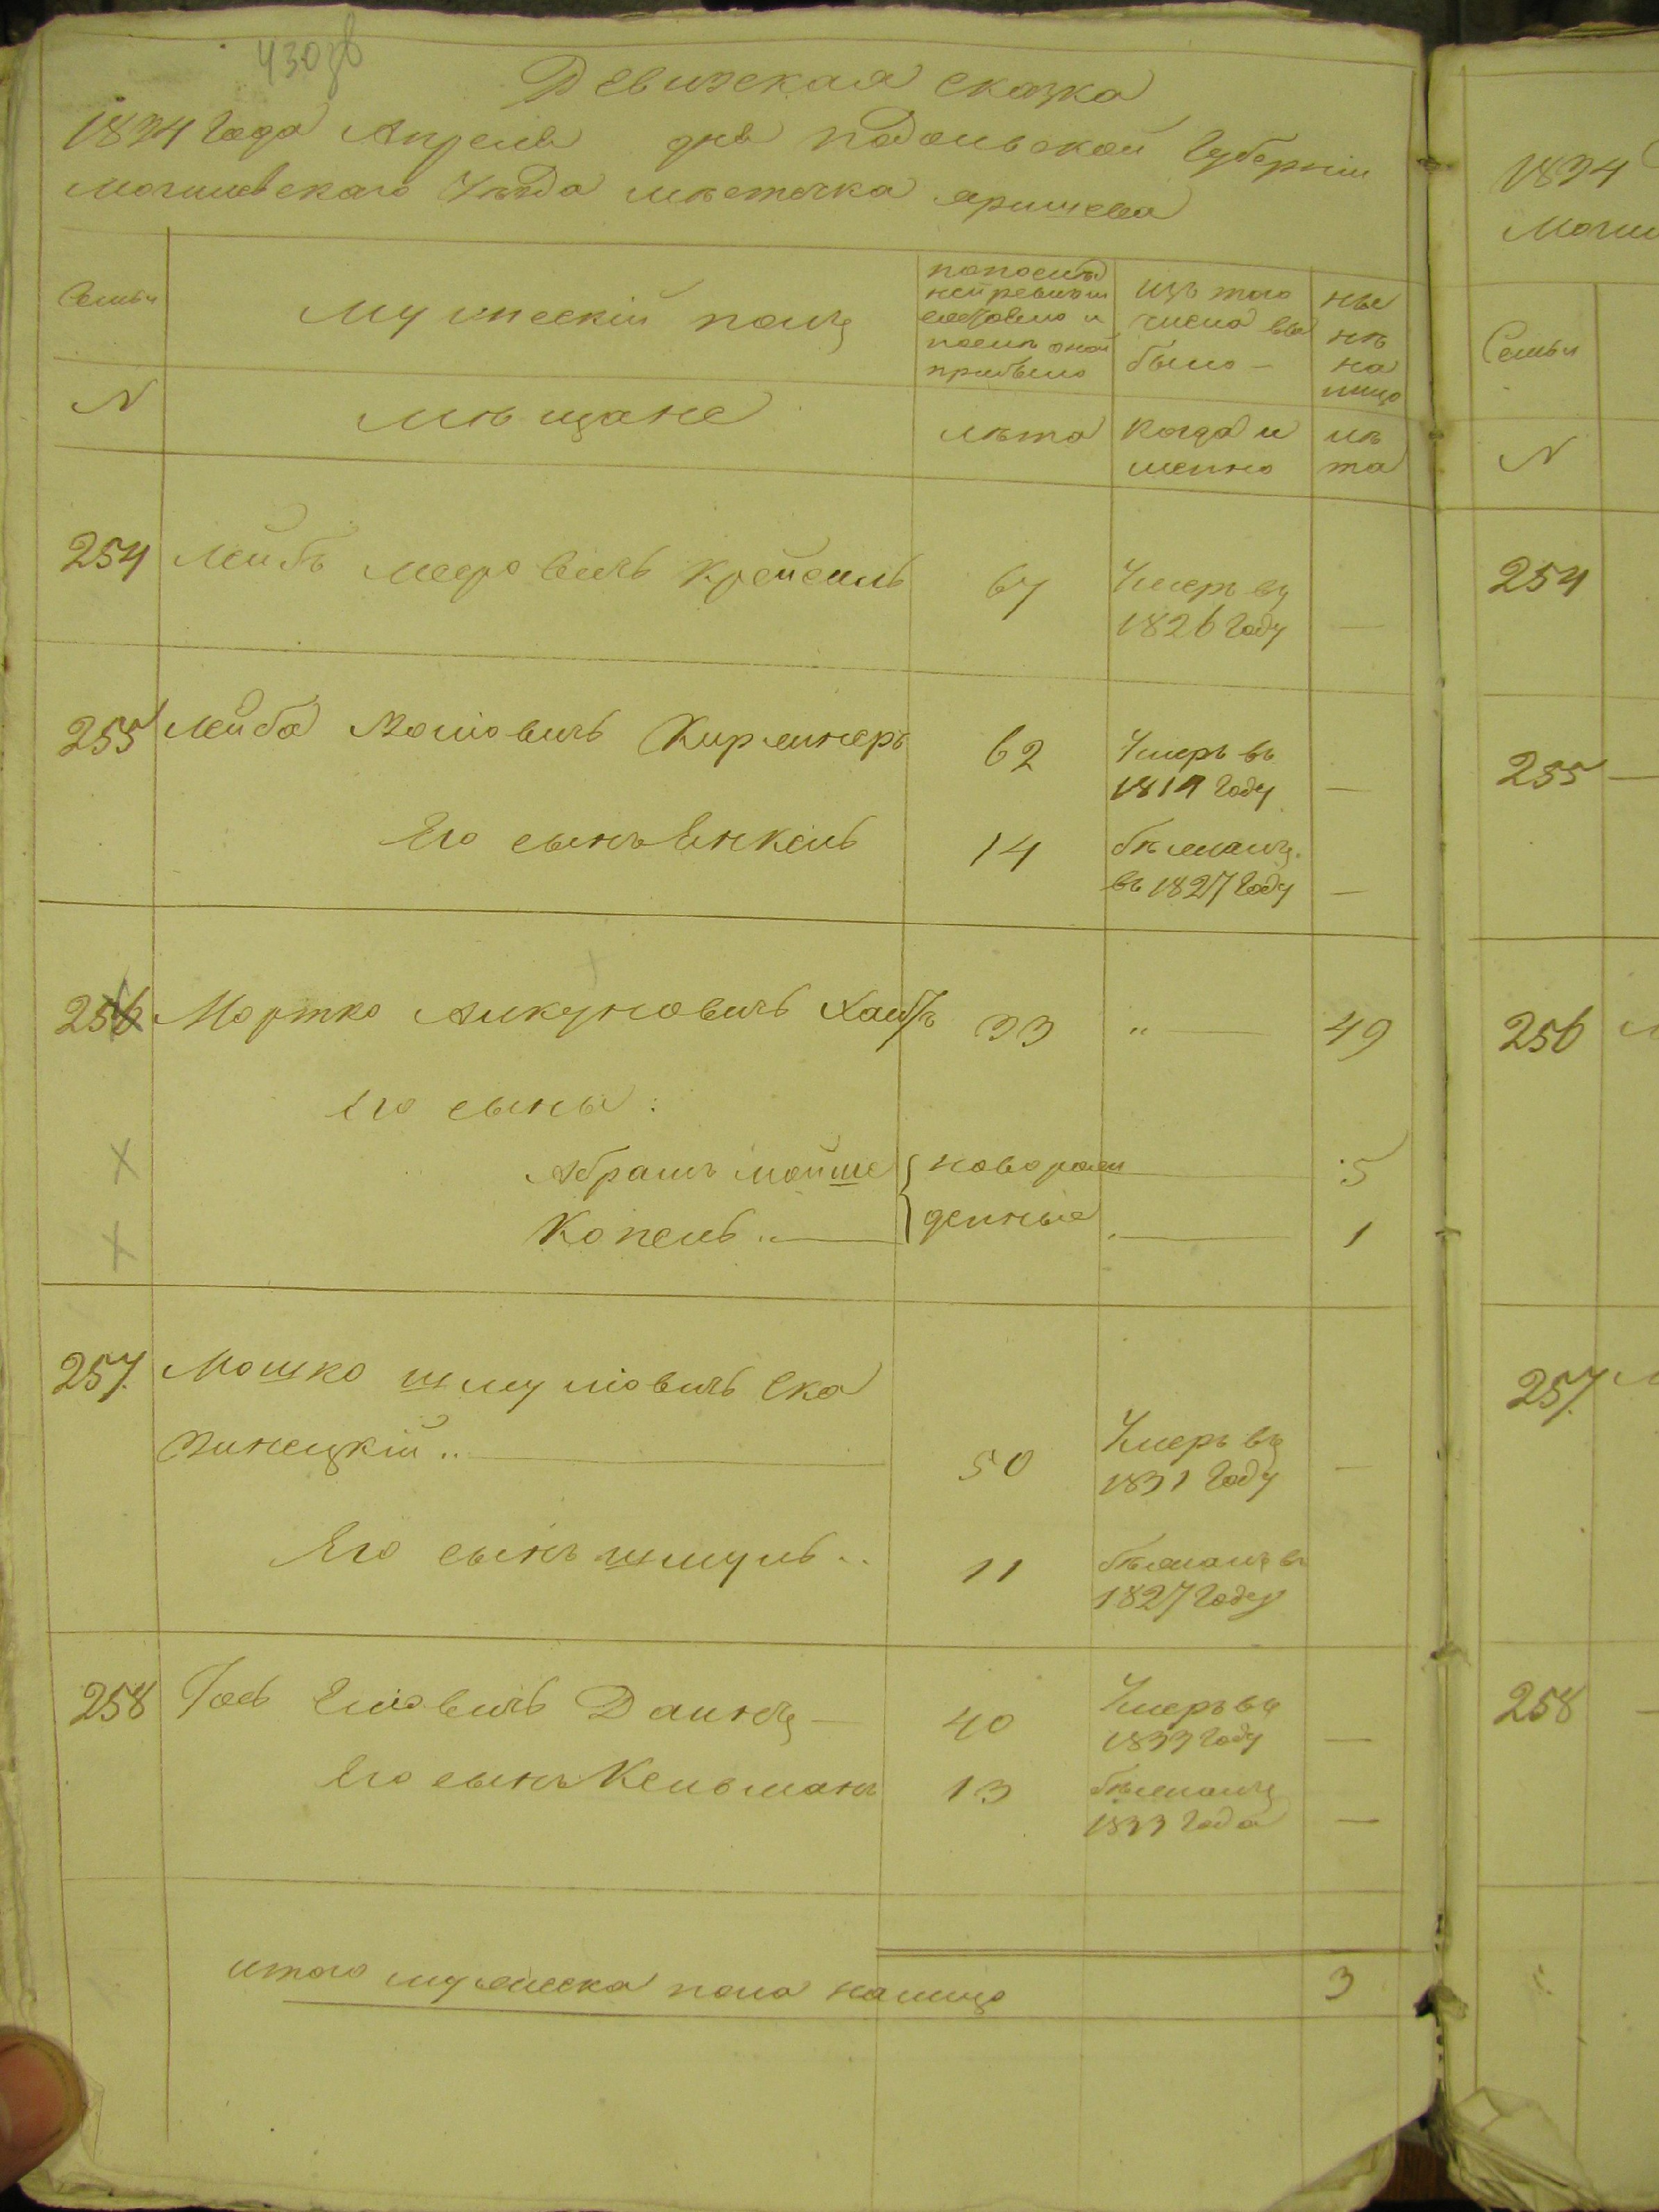 430об
Ревижская сказка
1834 Года Апреля дня Подольской Губернии
Могилевскаго Уезда местечка Яришева
Семьи
мужескій полъ
по последней ревизіи состояло и после оной прибыло
изъ того числа выбыло
ныне на лицо
N
мещане
лета
когда именно
лета
254 Лейбъ Мееровичь Крейсель 67 Умеръ въ 1826 Году —
255 Лейба Волковичь Киржнеръ 62 Умеръ въ 1819 Году —
Его сынъ Янкель 14 бежалъ въ 1827 Году —
256 Мортко Аикуновичь Хаитъ 33 „ — 49
Его сыны:
Абрамъ Мойше новорожденные 5
Копель .. 1
257. Мошко Шмулювичь Скази
нецкій .. 50 Умеръ въ 1831 Году —
Его сынъ Шмуль .. 11 бежалъ въ 1827 Году
258 Іось Еліовичь Даинъ — 40 Умеръ въ 1833 Году —
Его сынъ Кельманъ 13 бежалъ 1833 Года —
итого мужеска пола налицо 3
1834
Могил
Семьи
N
254
255 —
256
257.
258